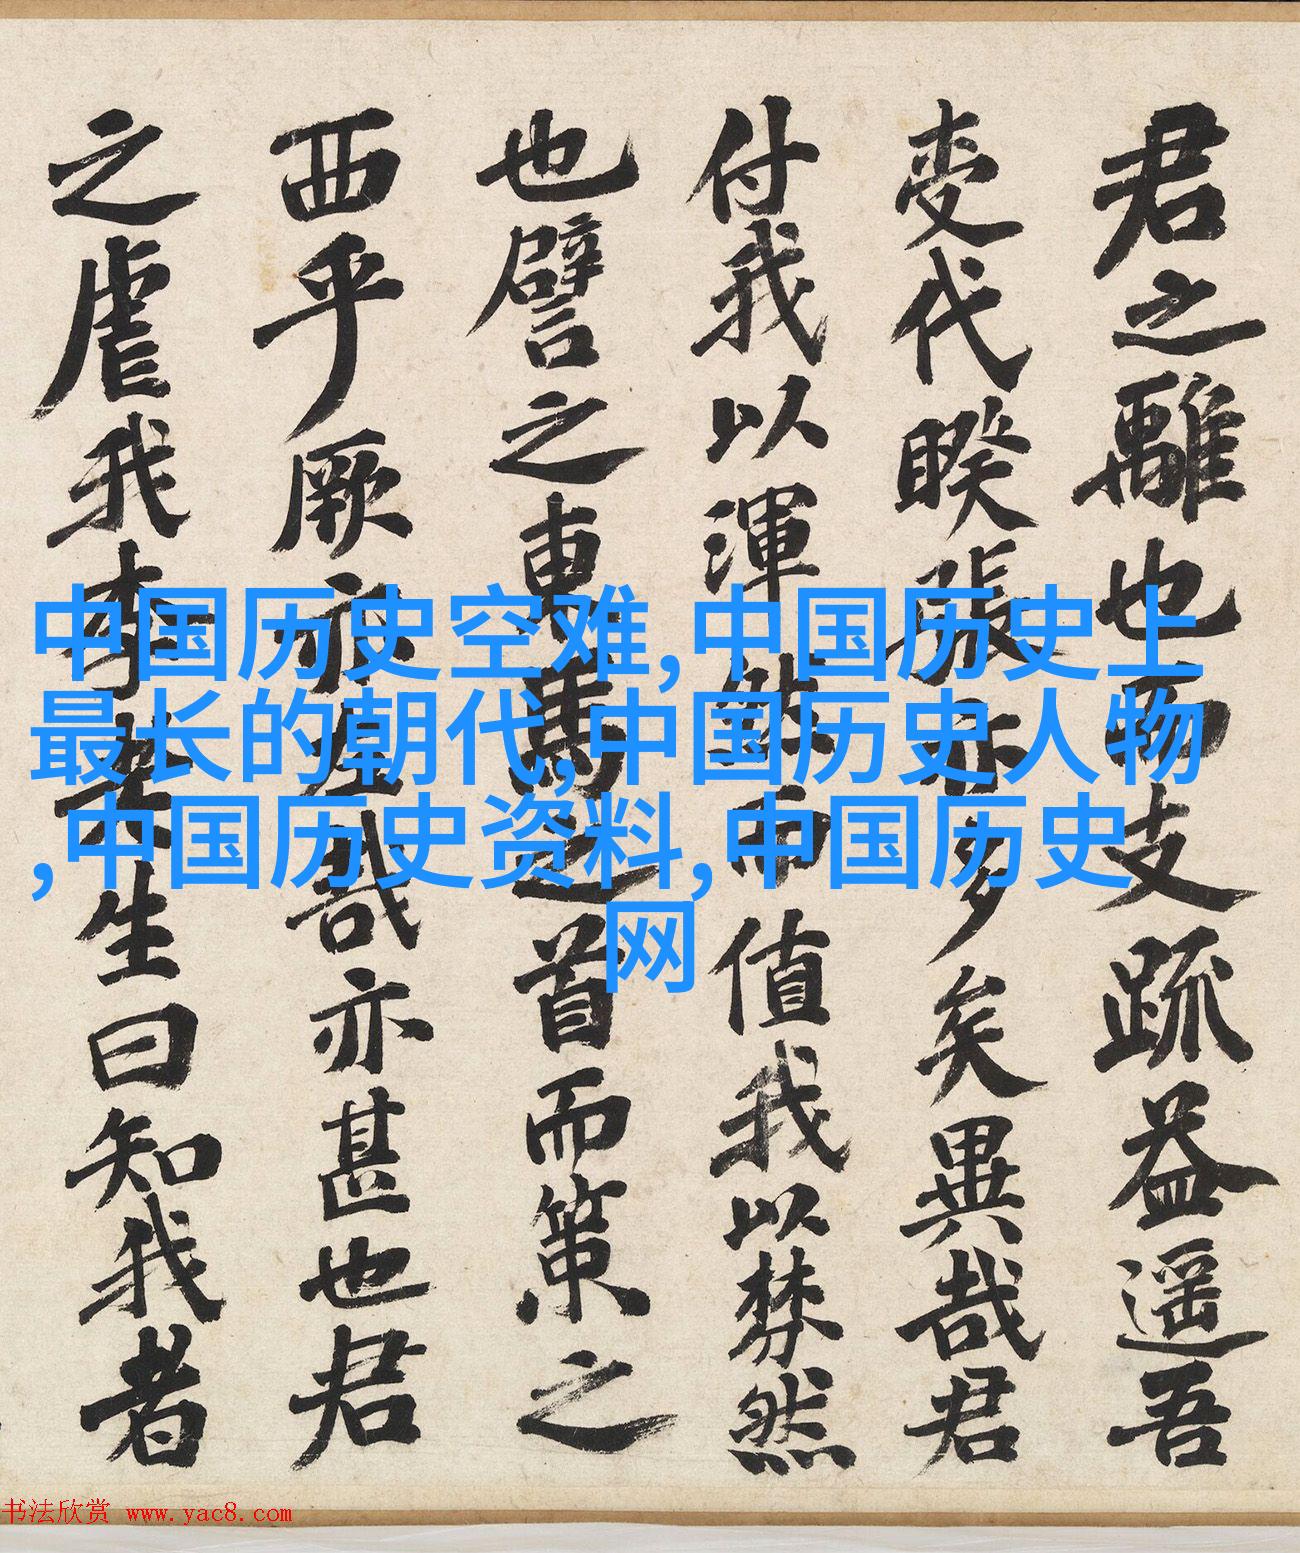 君之離也而支疏益遥吾
代暌張亦多矣異哉君
付我以渾然而值我以棼然
也譬之東馬之首而策之
西乎厥亦左哉亦甚也君
之虐我生曰知我者
中国历史空难,中国历史上
最长的朝代,中国历史人物
,中国历史资料,中国历史
网
书法欣赏 www.yac8.com